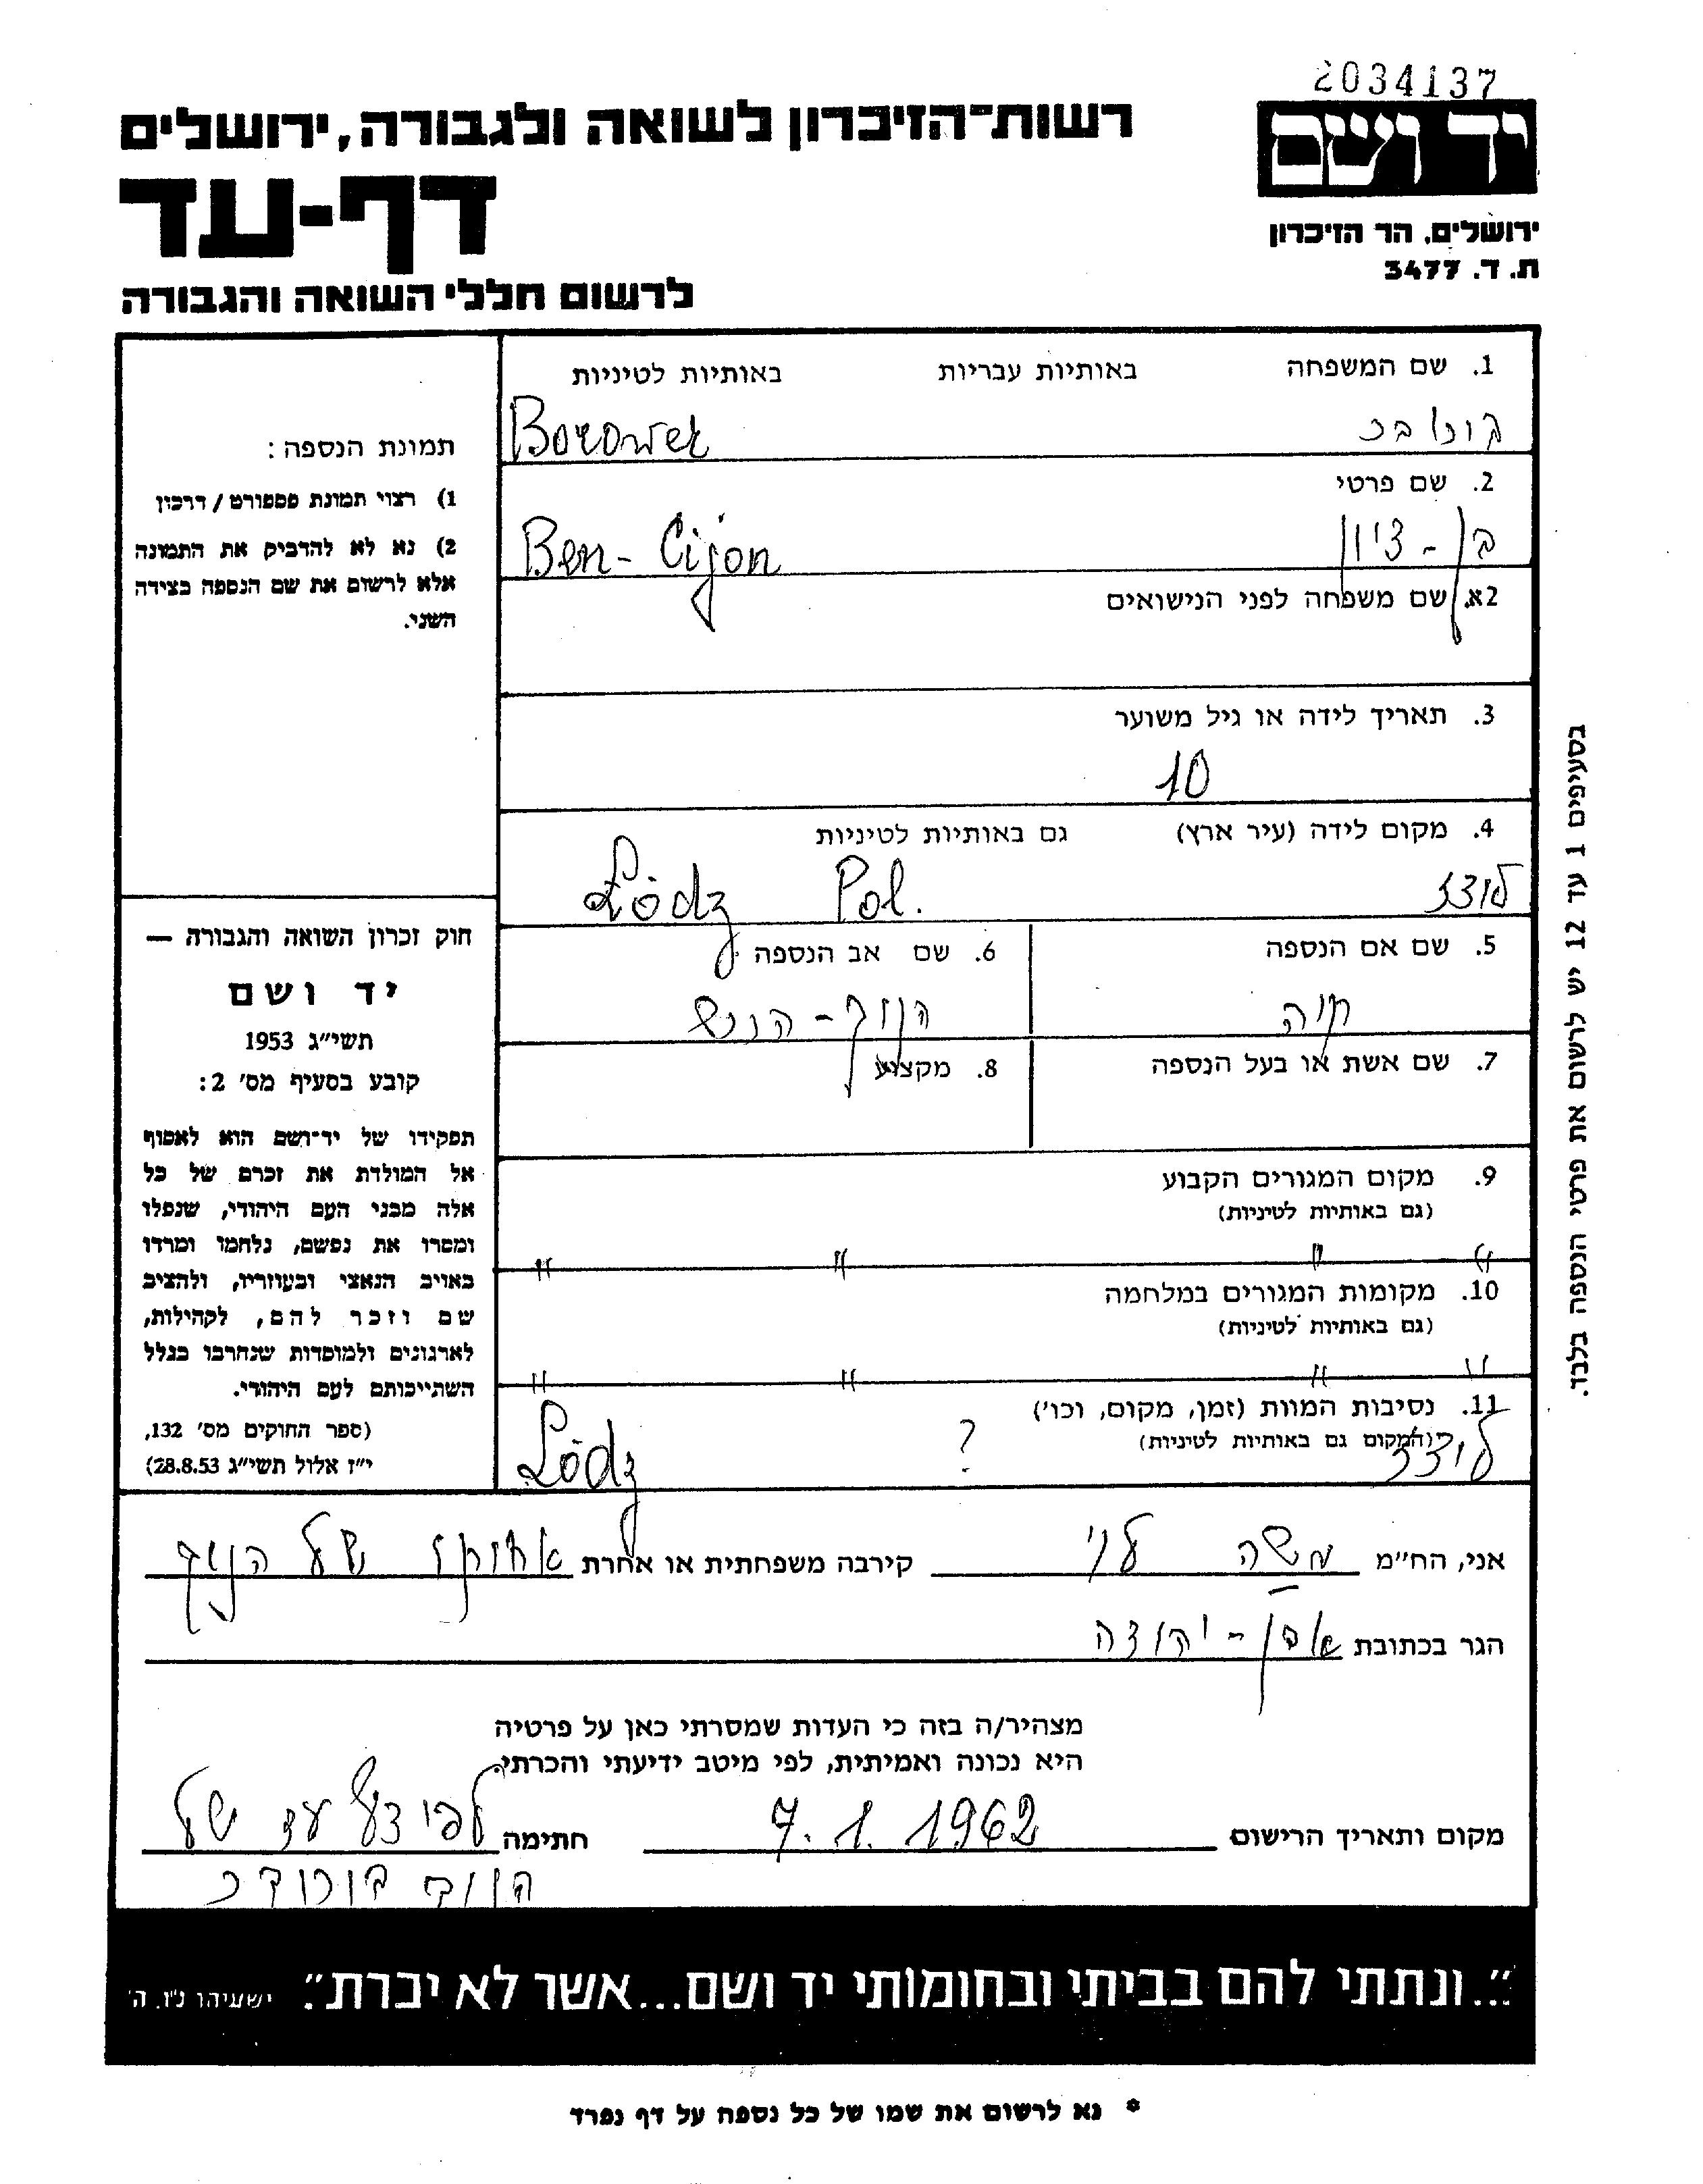 2034137
יד ושם
ירושלים, הר הזיכרון
ת. ד. 3477
רשות־הזיכרון לשואה ולגבורה, ירושלים
דף-עד
לרשום חללי השואה והגבורה
1. שם המשפחה באותיות עבריות באותיות לטיניות
Borowek
2. שם פרטי
בן - ציון Ben - Cijon
2א. שם משפחה לפני הנישואים
3. תאריך לידה או גיל משוער
10
4. מקום לידה (עיר ארץ) גם באותיות לטיניות
לודז Łódz Pol.
5. שם אם הנספה
6. שם אב הנספה
7. שם אשת או בעל הנספה
8. מקצוע
9. מקום המגורים הקבוע
(גם באותיות לטיניות)
" " " "
10. מקומות המגורים במלחמה
(גם באותיות לטיניות)
" " " "
11. נסיבות המוות (זמן, מקום, וכו')
(המקום גם באותיות לטיניות)
לודז ? Łódz
תמונת הנספה:
1) רצוי תמונת פספורט / דרכון
2) נא לא להדביק את התמונה
אלא לרשום את שם הנספה בצידה
השני.
חוק זכרון השואה והגבורה —
יד ושם
תשי"ג 1953
קובע בסעיף מס' 2:
תפקידו של יד־ושם הוא לאסוף
אל המולדת את זכרם של כל
אלה מבני העם היהודי, שנפלו
ומסרו את נפשם, נלחמו ומרדו
באויב הנאצי ובעוזריו, ולהציב
שם וזכר להם, לקהילות,
לארגונים ולמוסדות שנחרבו בגלל
השתייכותם לעם היהודי.
(ספר החוקים מס' 132,
י"ז אלול תשי"ג 28.8.53)
בסעיפים 1 עד 12 יש לרשום את פרטי הנספה בלבד.
אני, הח"מ משה קירבה משפחתית או אחרת של
הגר בכתובת אבן - יהודה
מצהיר/ה בזה כי העדות שמסרתי כאן על פרטיה
היא נכונה ואמיתית, לפי מיטב ידיעתי והכרתי.
מקום ותאריך הרישום 7. 1. 1962 חתימה לפי דף עד של
"...ונתתי להם בביתי ובחומותי יד ושם...אשר לא יכרת". ישעיהו נ"ו, ה'
* נא לרשום את שמו של כל נספה על דף נפרד